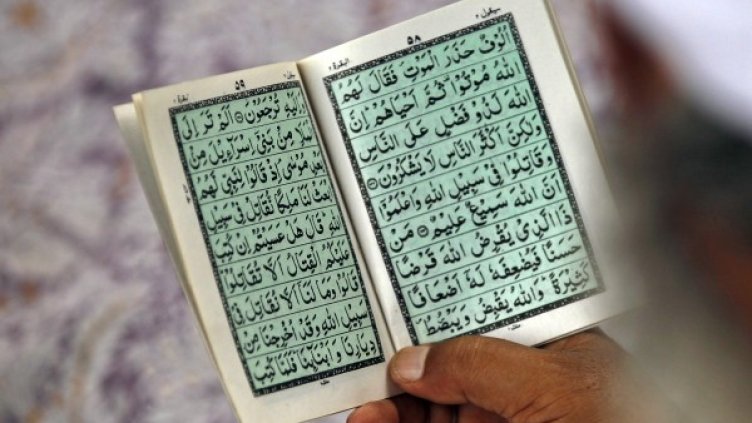 سیقول ۲ ۵۸ البقرة ۲
اُلُوْفٌ حَذَرَ الْمَوْتِ فَقَالَ لَهُمُ
اللّٰهُ مُوْتُوْا ثُمَّ اَحْيَاهُمْ اِنَّ
اللّٰهَ لَذُوْ فَضْلٍ عَلَى النَّاسِ
وَلٰكِنَّ اَكْثَرَ النَّاسِ لَا يَشْكُرُوْنَ
وَقَاتِلُوْا فِيْ سَبِيْلِ اللّٰهِ وَاعْلَمُوْا
اَنَّ اللّٰهَ سَمِيْعٌ عَلِيْمٌ مَنْ
ذَا الَّذِيْ يُقْرِضُ اللّٰهَ قَرْضًا
حَسَنًا فَيُضٰعِفَهٗ لَهٗ اَضْعَافًا
كَثِيْرَةً وَاللّٰهُ يَقْبِضُ وَيَبْصُطُ
۵۹
وَاِلَيْهِ تُرْجَعُوْنَ اَلَمْ تَرَ اِلَى
الْمَلَاِ مِنْ بَنِيْ اِسْرَآءِيْلَ مِنْ
بَعْدِ مُوْسٰى اِذْ قَالُوْا لِنَبِيٍّ لَّهُمُ
ابْعَثْ لَنَا مَلِكًا نُّقَاتِلْ فِيْ سَبِيْلِ
اللّٰهِ قَالَ هَلْ عَسَيْتُمْ اِنْ كُتِبَ
عَلَيْكُمُ الْقِتَالُ اَلَّا تُقَاتِلُوْا
قَالُوْا وَمَا لَنَا اَلَّا نُقَاتِلَ فِيْ
سَبِيْلِ اللّٰهِ وَقَدْ اُخْرِجْنَا مِنْ
دِيَارِنَا وَاَبْنَآئِنَا فَلَمَّا كُتِبَ